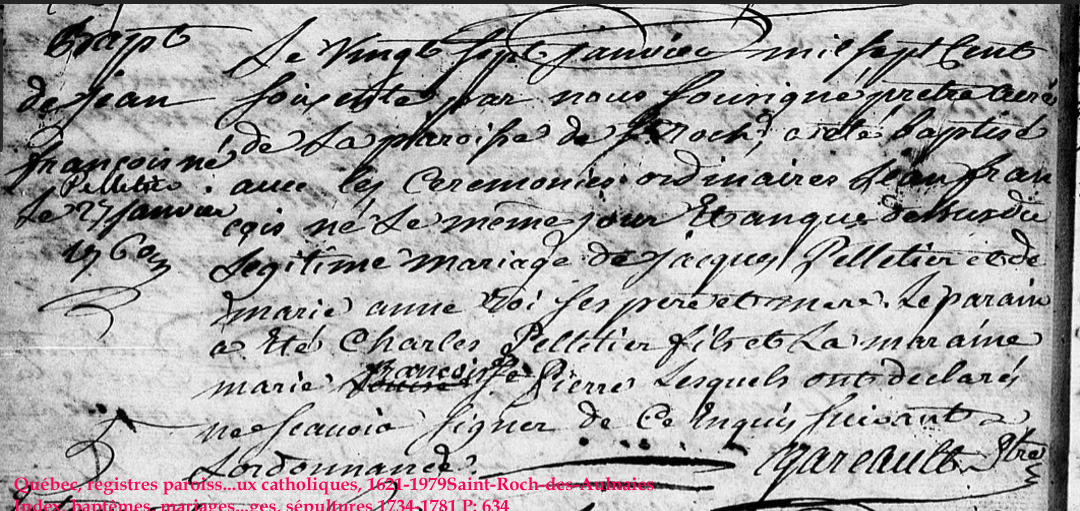 Bapt
de jean
françois né
Pelletie
le 27 janvier
1760
Le vingt sept janvier mil sept Cent
soixente par nous sousigné prêtre curé
de la paroisse de St Roch, a été baptisé
avec les Ceremonies ordinaires Jean fran
çois né le même jour du
legitime mariage de jacques Pelletier et de
marie anne Roi ses pere et mere. Le parain
a été Charles Pelletier fils et La maraine
marie françoise St Pierre Lesquels ont declaré
ne scavoir signer de Ce Enquis suivant
Lordonnance.
Gareault Ptre
Québec, registres paroiss...ux catholiques, 1621-1979Saint-Roch-des-Aulnaies
Index, baptêmes, mariages...ges, sépultures 1734-1781 P: 634